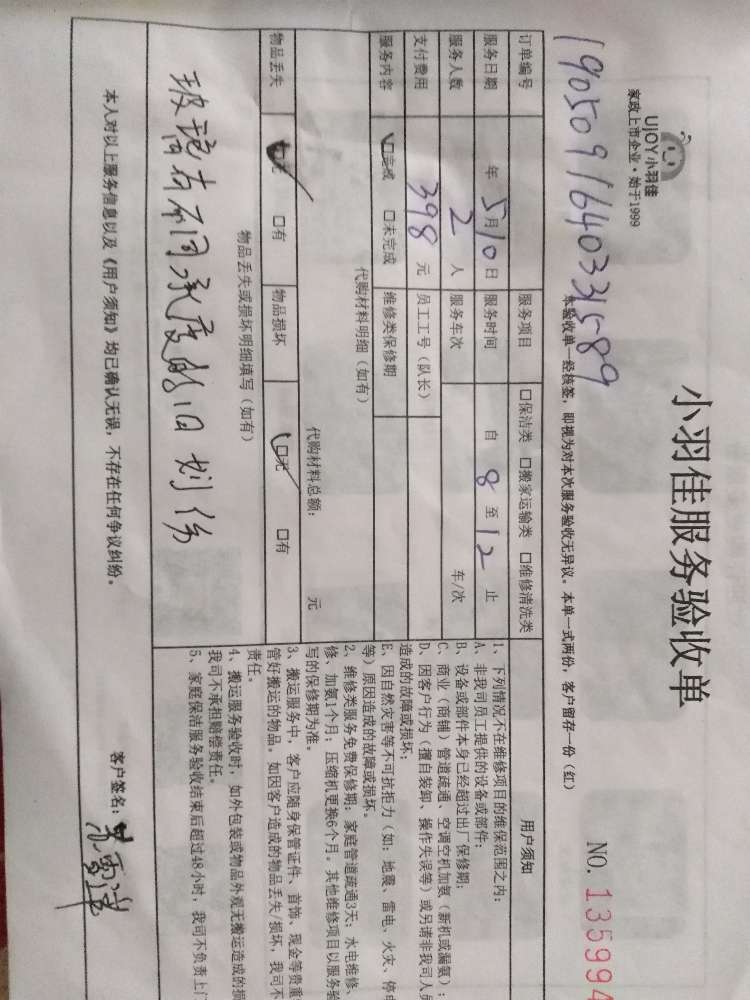 小羽佳服务验收单
UJOY小羽佳
家政上市企业·始于1999
NO. 135994
本验收单一经核签，即视为对本次服务验收无异议。本单一式两份，客户留存一份（红）
订单编号 19050916403331589
服务项目 口保洁类 口搬家运输类 口维修清洗类
服务日期 年 5月10日 服务时间 自 8 至 12 止
服务人数 2 人 服务车次 车/次
支付费用 398 元 员工工号（队长）
服务内容 口完成 口未完成 维修类保修期
代购材料明细（如有）
代购材料总额： 元
物品丢失 口无 口有 物品损坏 口无 口有
物品丢失或损坏明细填写（如有）
玻璃有不同程度的旧划伤
用户须知
1、下列情况不在维修项目的维保范围之内：
A、非我司员工提供的设备或部件；
B、设备或部件本身已经超过出厂保修期；
C、商业（商铺）管道疏通、空调空机加氨（新机或漏氨）；
D、因客户行为（擅自装卸、操作失误等）或另请非我司人员
造成的故障或损坏；
E、因自然灾害等不可抗拒力（如：地震、雷电、火灾、停电
等）原因造成的故障或损坏。
2、维修类服务免费保修期：家庭管道疏通3天；水电维修、
修、加氨1个月；压缩机更换6个月。其他维修项目以服务验
写的保修期为准。
3、搬运服务中，客户应随身保管证件、首饰、现金等贵重
管好搬运的物品。如因客户造成的物品丢失/损坏，我司不
责任。
4、搬运服务验收时，如外包装或物品外观无搬运造成的损
我司不承担赔偿责任。
5、家庭保洁服务验收结束后超过48小时，我司不负责上门
本人对以上服务信息以及《用户须知》均已确认无误，不存在任何争议纠纷。
客户签名：